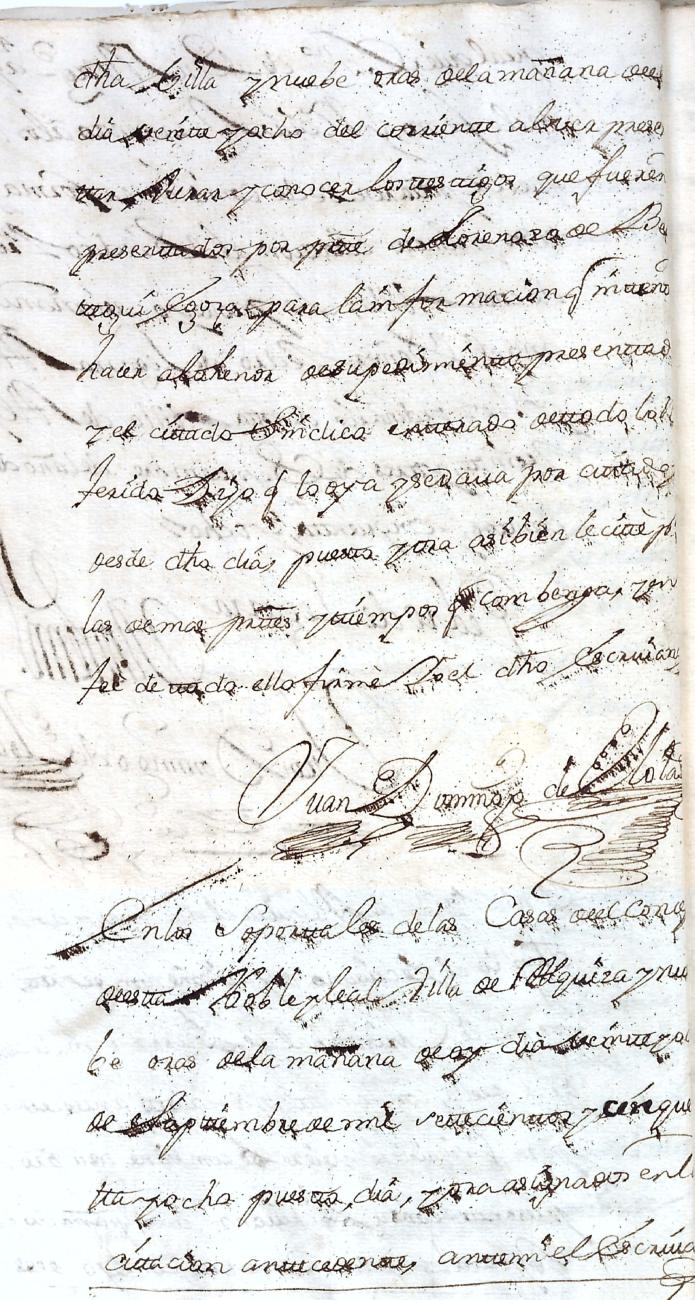 dha Villa y nuebe oras de la mañana del
dia veinte y ocho del corriente a ber presen
tar, Jurar y conocer los testigos que fueren
presentados por parte de Lorenzo de Be
tegui Egoza, para la informacion q intten
hacer al thenor de su pedimento presenttad
y el cittado Sindico entterado de ttodo lo
ferido Dijo q lo oya y se daua por cittado
desde dho dia, puesto y ora asi bien le citte p
las demas prttes y tiempos q combenga, y en
fee de ttodo ello firme Yo el dho Escriuan
Juan Domingo de Olola
En los Soporttales de las Casas del Conc
de esta Noble y leal Villa de y nu
be oras de la mañana de oy dia veinte y o
de Septtiembre de mil settecienttos y cinque
tta y ocho puesto, dia, y ora asignados en l
cittacion anttecedente, antte mi el Escriua